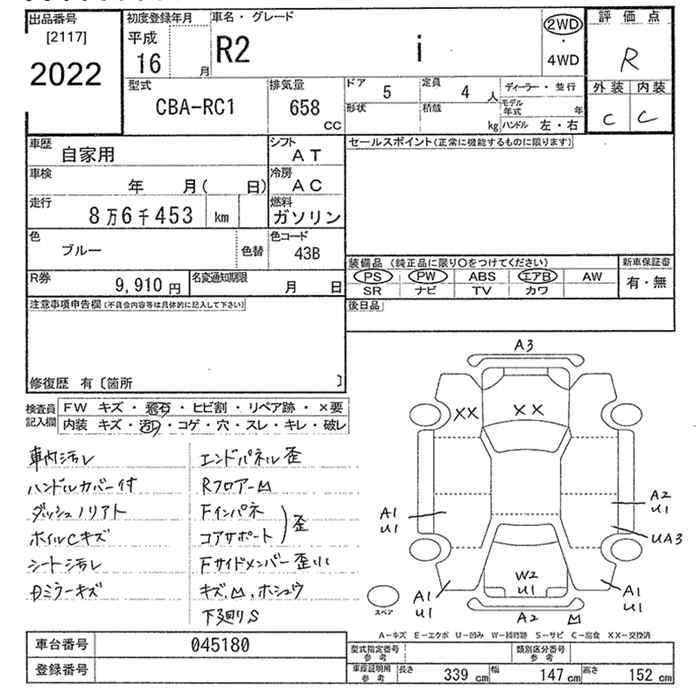 出品番号
[2117]
2022
初度登録年月
平成
16 月
車名・グレード
R2 i
2WD
・
4WD
評価点
R
外装 内装
C C
型式
CBA-RC1
排気量
658
CC
ドア 5
定員 4 人
ディーラー・並行
形状
積載 kg
モデル年式 年
ハンドル 左・右
車歴
自家用
シフト
AT
車検
年 月( 日)
冷房
AC
走行
8万6千453 km
燃料
ガソリン
色
ブルー
色替
色コード
43B
R券
9,910 円
名変通知期限
月 日
セールスポイント(正常に機能するものに限ります)
装備品 (純正品に限り○をつけてください)
PS PW ABS エアB AW
SR ナビ TV カワ
新車保証書
有・無
後日品
注意事項申告欄(不具合内容等は具体的に記入して下さい)
修復歴 有〔箇所 〕
検査員
記入欄
FW キズ・飛石・ヒビ割・リペア跡・×要
内装 キズ・汚れ・コゲ・穴・スレ・キレ・破レ
車内汚レ
ハンドルカバー付
ダッシュノリアト
ホイルCキズ
シートヨゴレ
Dミラーキズ
エンドパネル歪
Rフロアー凹
Fインパネ
コアサポート
歪
Fサイドメンバー歪
キズ、凹、ホシュウ
下廻りS
A3
XX
XX
A1
U1
A2
U1
UA3
A1
U1
W2
U1
A1
U1
A2
凹
スペア
A-キズ E-エクボ U-凹み W-補修跡 S-サビ C-腐食 XX-交換済
車台番号 045180
登録番号
型式指定番号
参考
類別区分番号
参考
車庫証明用
参考
長さ 339 cm 幅 147 cm 高さ 152 cm